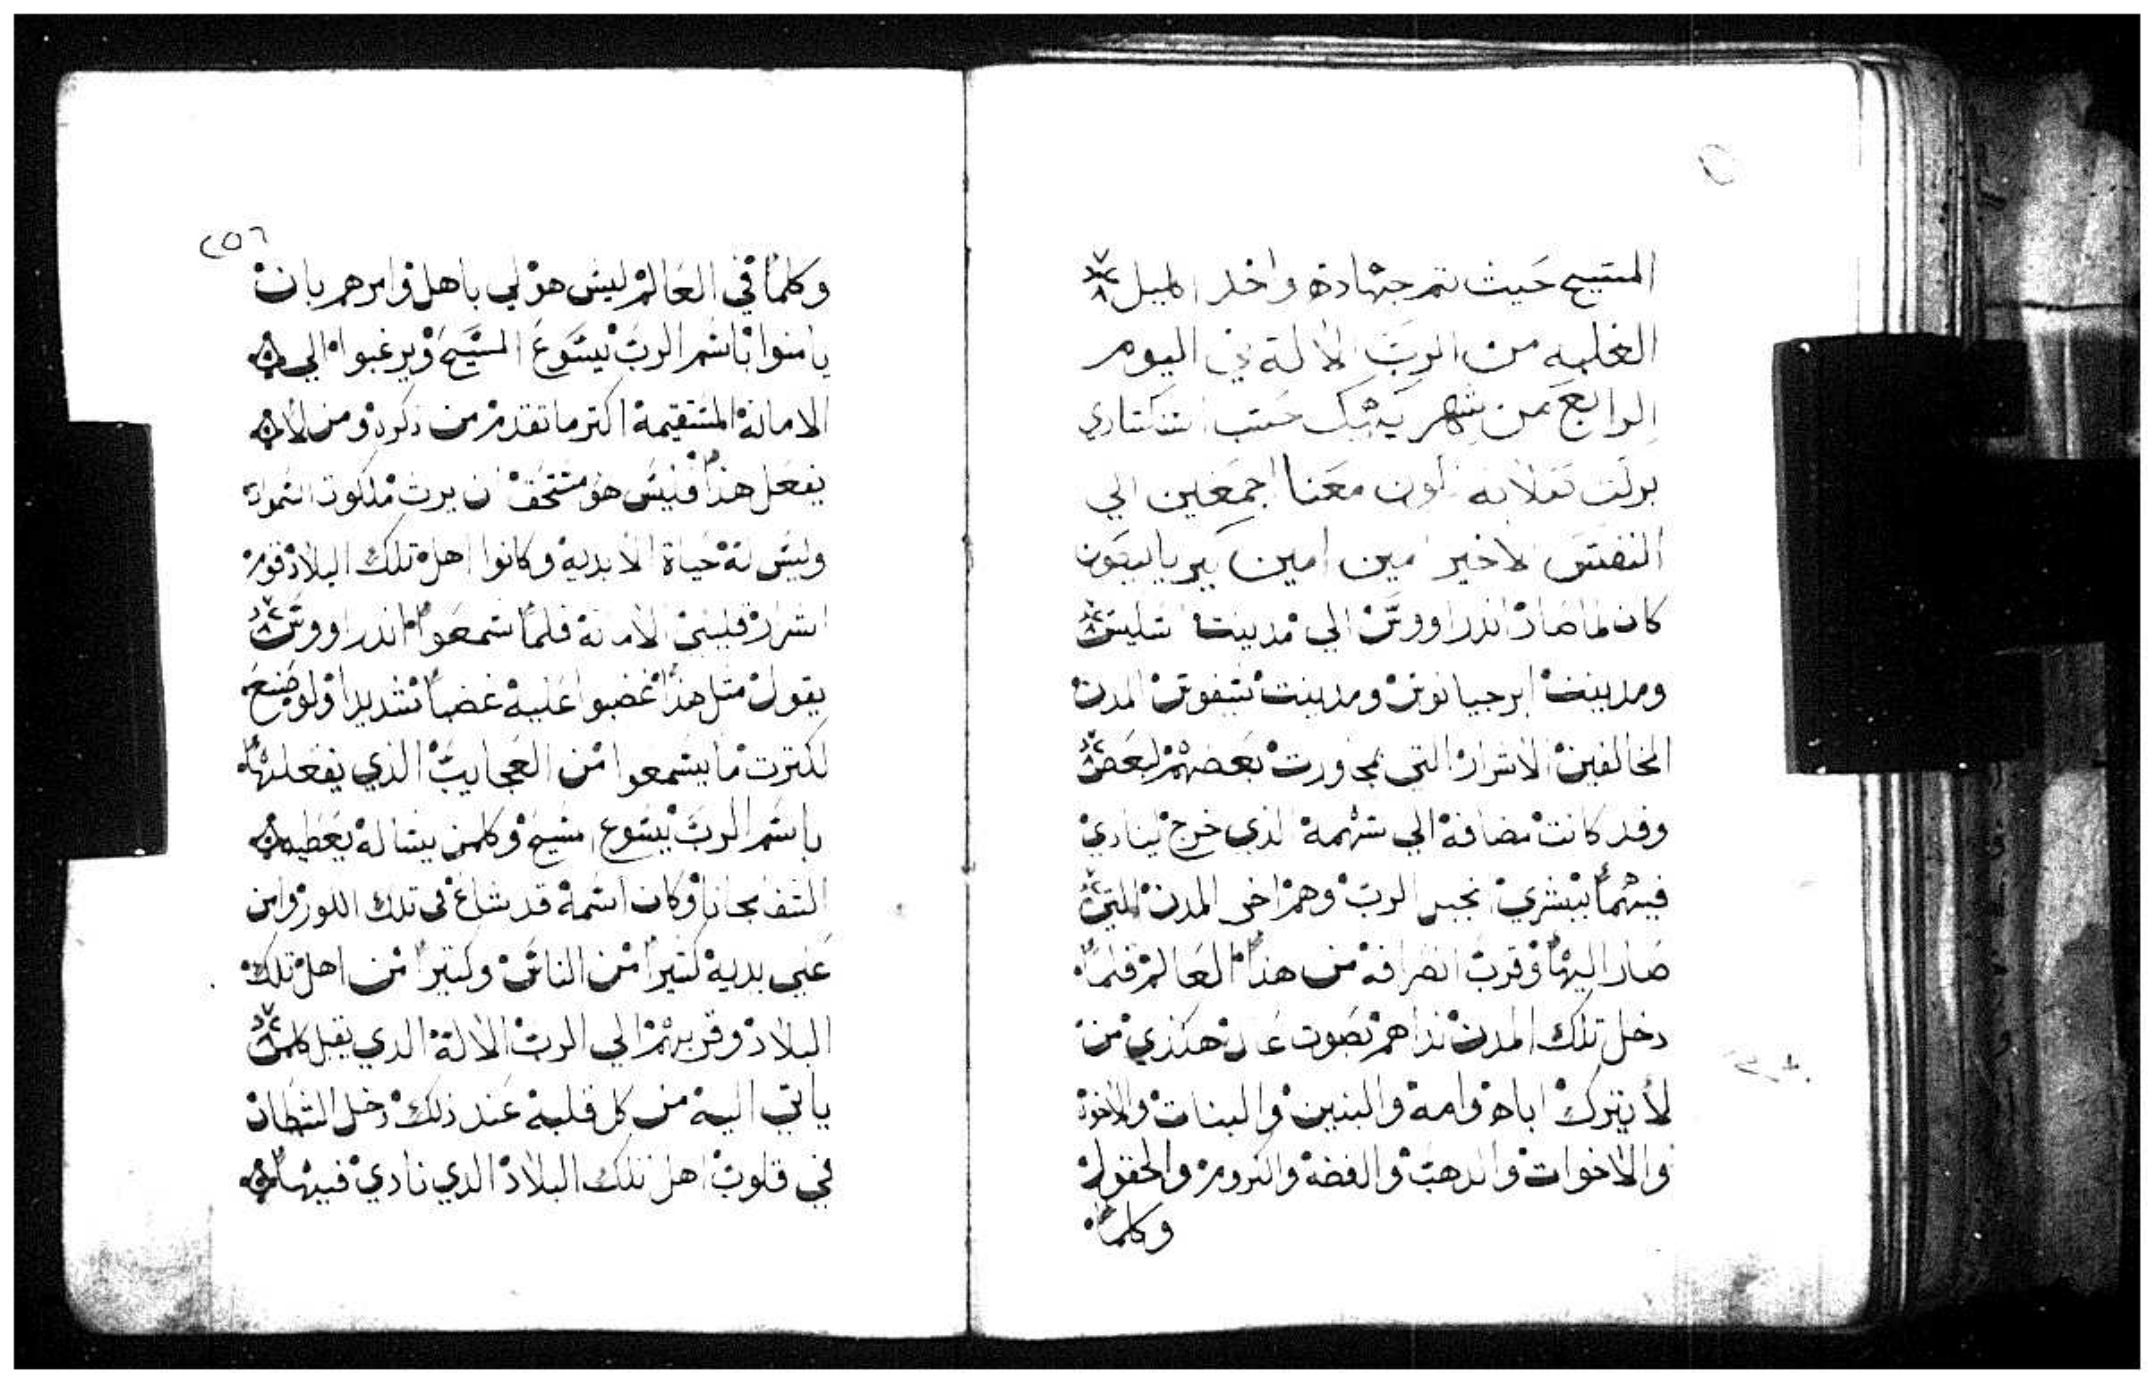 المسيح حيث تم جهاده واخد الميل
الغلبه من الرب الالة في اليوم
الرابع من شهر كيهك حسب
بركت تكون معنا اجمعين الي
النفس الاخير امين امين
كان لما صار اندراووس الي مدينت
ومدينت ومدينت المدن
المخالفين الاشرار التي مجاورت بعضهم لبعض
وقد كانت مضافة الي سهمة الذي خرج ينادي
فيهما يبشري الرب وهم اخر المدن التي
صار اليها وقرب انصرافة من هذا العالم فلما
دخل تلك المدن نداهم بصوت عال هكذي من
لا يترك اباه وامة والبنين والبنات والاخوة
والاخوات والدهب والفضة والكروم والحقول
وكلما
٢٥٦
وكلما في العالم ليس هو لي باهل وامرهم بان
يامنوا باسم الرب يسوع المسيح ويرغبوا الي
الامانة المستقيمة اكتر ما تقدم من ذكره ومن لا
يفعل هذا فليس هو مستحق ان يرث ملكوت السموات
وليس لة حياة الابدية وكانوا اهل تلك البلاد قوم
اشرار الامانة فلما سمعوا اندراووس
يقول متل هذا غضبوا علية غضبا شديدا ولو
لكترت ما يسمعوا من العجايب الذي يفعلها
باسم الرب يسوع المسيح وكلمن يسالة يعطيه
الشفا مجانا وكان اسمة قد شاع في تلك الكور وامن
علي يدية كتيرا من الناس وكتيرا من اهل تلك
البلاد وقربهم الي الرب الالة الدي يقبل كلمن
ياتي الية من كل قلبة عند ذلك دخل الشطان
في قلوب اهل تلك البلاد الدي نادي فيها